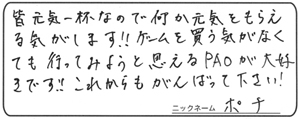 皆元気一杯なので何か元気をもらえ
る気がします!!ゲームを買う気がなく
ても行ってみようと思えるPAOが大好
きです!!これからもがんばって下さい!
ニックネーム ポチ